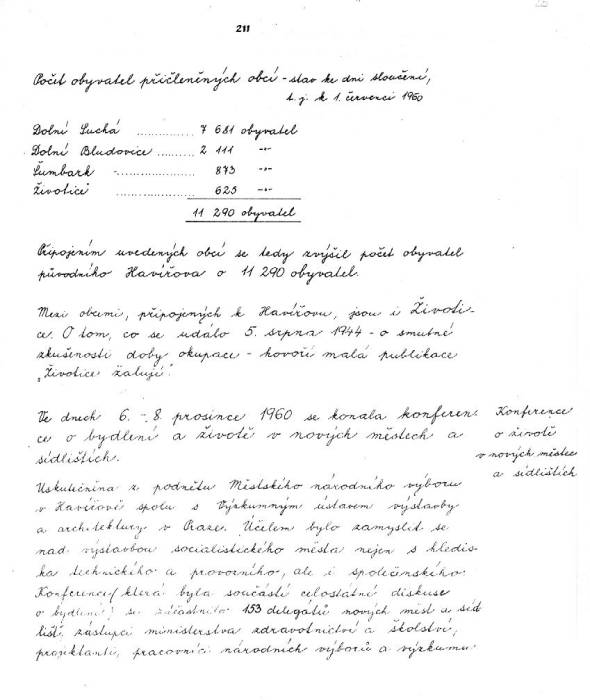 211
Počet obyvatel přičleněných obcí - stav ke dni sloučení,
t. j. k 1. červenci 1960
Dolní Suchá .............. 7 681 obyvatel
Dolní Bludovice ......... 2 111 -"-
Šumbark - .................. 873 -"-
Životice .................... 625 -"-
11 290 obyvatel
Připojením uvedených obcí se tedy zvýšil počet obyvatel
původního Havířova o 11 290 obyvatel.
Mezi obcemi, připojených k Havířovu, jsou i Životi-
ce. O tom, co se událo 5. srpna 1944 - o smutné
zkušenosti doby okupace - hovoří malá publikace
„Životice žalují".
Ve dnech 6. - 8. prosince 1960 se konala konferen-
ce o bydlení a životě v nových městech a
sídlištích.
Konference
o životě
v nových městech
a sídlištích
Uskutečněna z podnětu Městského národního výboru
v Havířově spolu s Výzkumným ústavem výstavby
a architektury v Praze. Účelem bylo zamyslit se
nad výstavbou socialistického města nejen s hledis-
ka technického a provozního, ale i společenského.
Konference/ která byla součástí celostátní diskuse
o bydlení/ se zúčastnilo 153 delegátů nových měst a síd
lišť, zástupci ministerstva zdravotnictví a školství,
projektanti, pracovníci národních výborů a výzkumu.